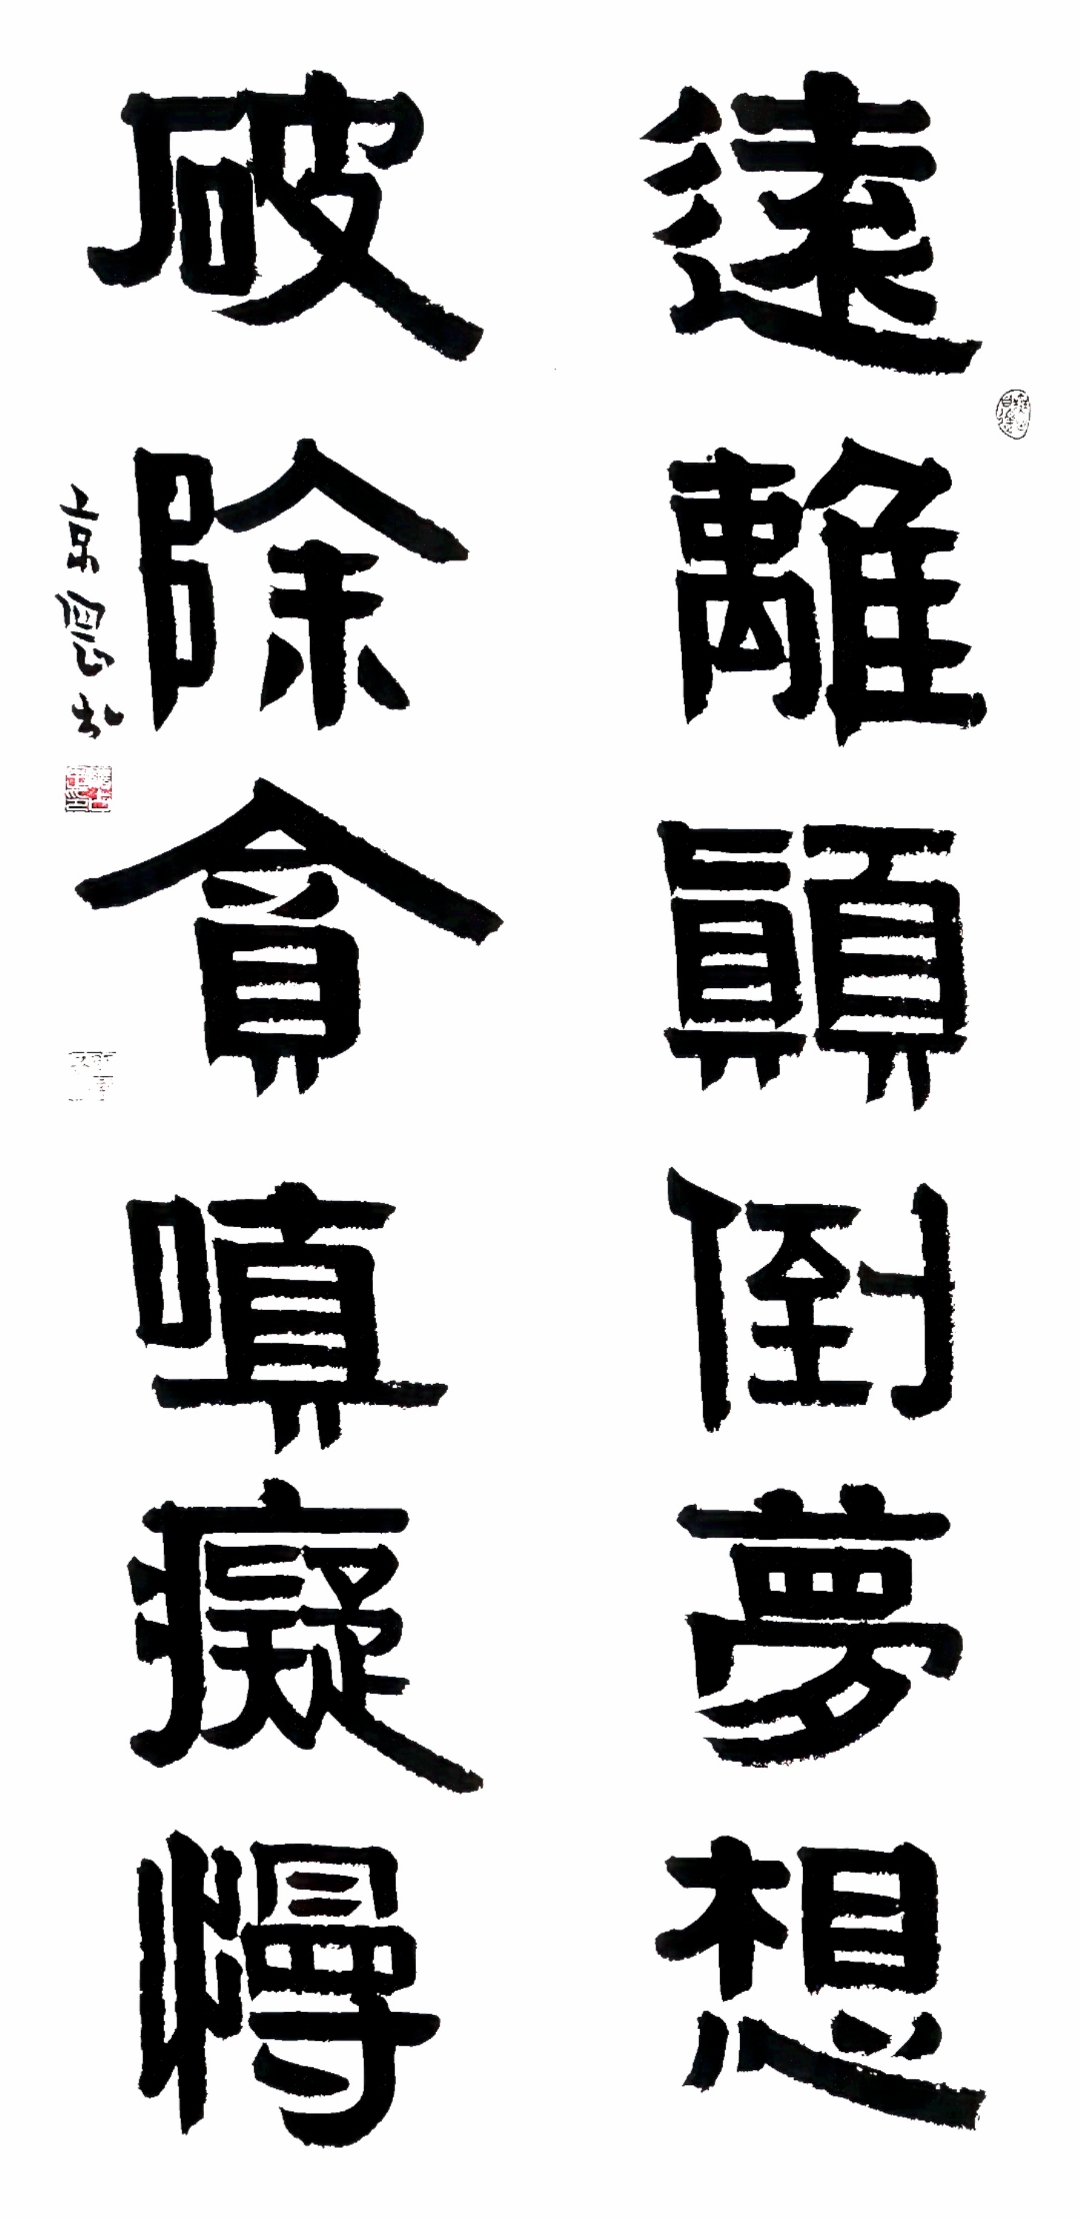 遠離顛倒夢想
破除貪嗔癡慢
京農书